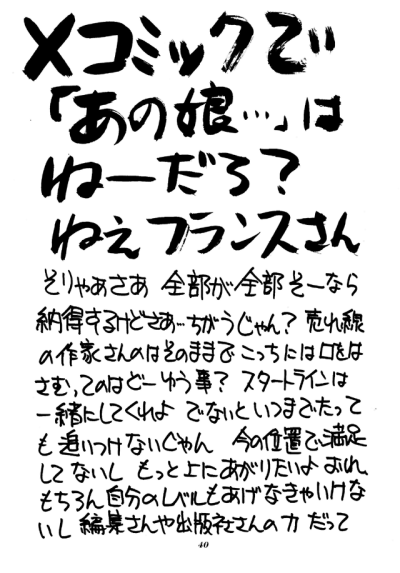 Xコミックで
「あの娘…」は
ねーだろ?
ねぇフランスさん
そりゃあさあ 全部が全部 そーなら
納得するけどさあ…ちがうじゃん? 売れ線
の作家さんのはそのままで こっちには口をは
さむってのはどーゆう事? スタートラインは
一緒にしてくれよ でないといつまでたって
も追いつけないじゃん 今の位置で満足
してないし もっと上にあがりたいよ おれ、
もちろん自分のレベルもあげなきゃいけな
いし 編集さんや出版社さんの力 だって
40